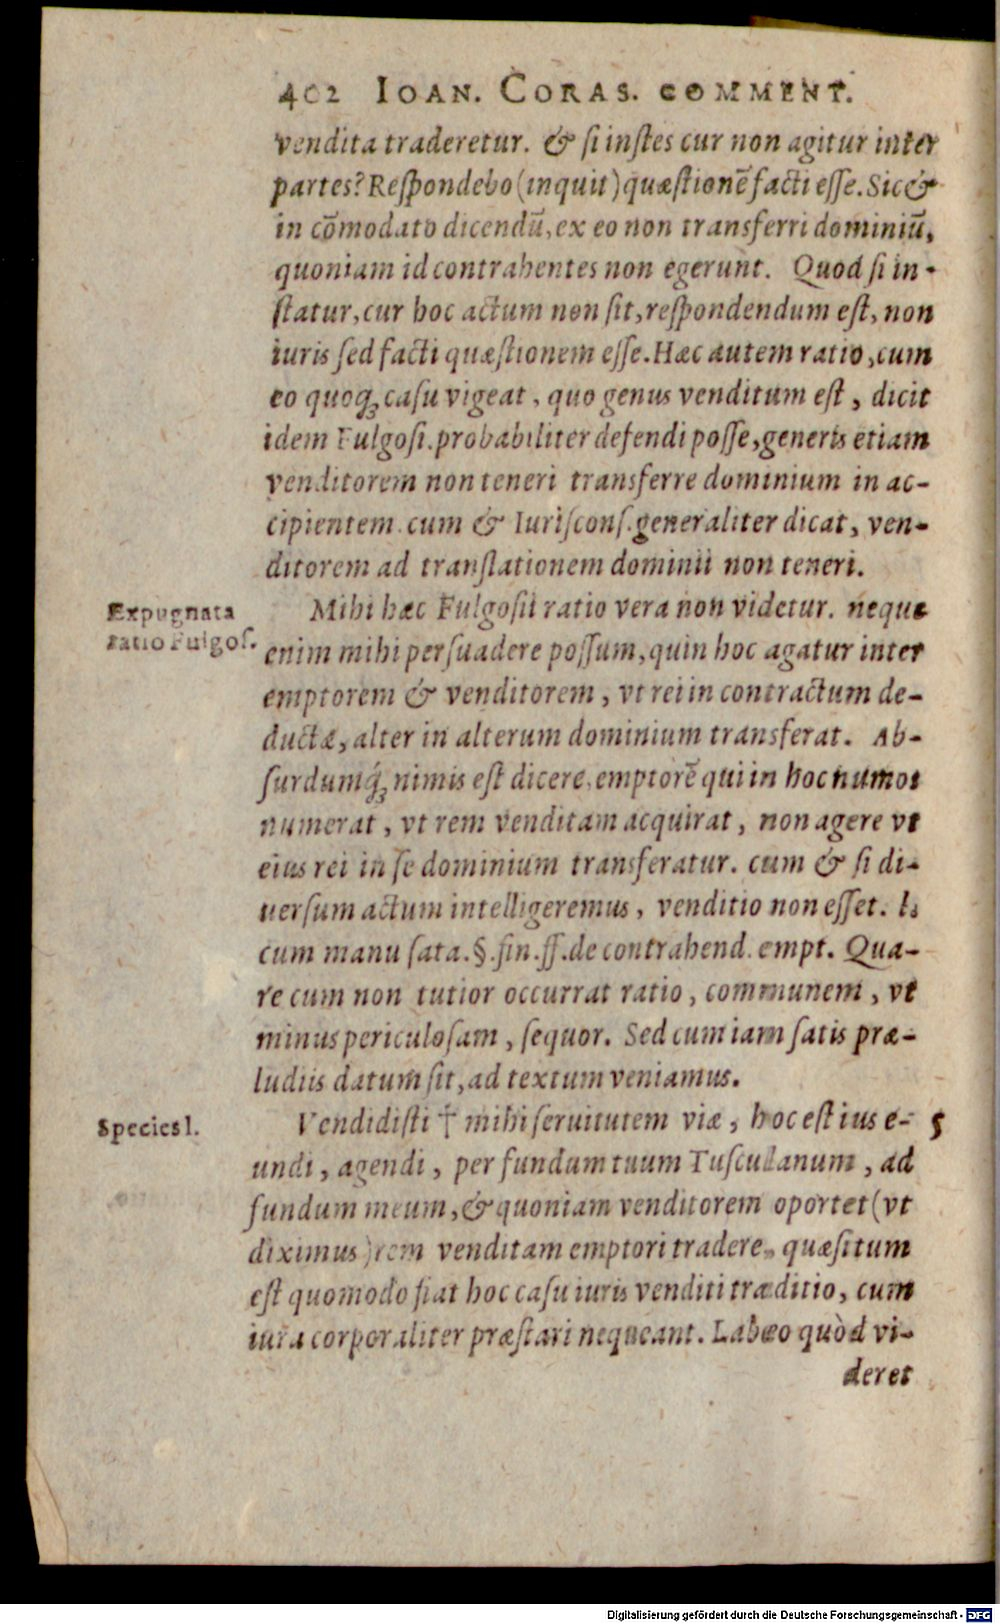 402 IOAN. CORAS. COMMENT.
vendita traderetur. & si instes cur non agitur inter
partes? Respondebo (inquit) quæstionē facti esse. Sic &
in cōmodato dicendū, ex eo non transferri dominiū,
quoniam id contrahentes non egerunt. Quod si in-
statur, cur hoc actum non sit, respondendum est, non
iuris sed facti quæstionem esse. Hæc autem ratio, cum
eo quoq; casu vigeat, quo genus venditum est, dicit
idem Fulgosi. probabiliter defendi posse, generis etiam
venditorem non teneri transferre dominium in ac-
cipientem. cum & Iuriscons. generaliter dicat, ven-
ditorem ad translationem dominii non teneri.
Expugnata
ratio Fulgos.
Mihi hæc Fulgosii ratio vera non videtur. neque
enim mihi persuadere possum, quin hoc agatur inter
emptorem & venditorem, vt rei in contractum de-
ductæ, alter in alterum dominium transferat. Ab-
surdumq́; nimis est dicere, emptorē qui in hoc numos
numerat, vt rem venditam acquirat, non agere vt
eius rei in se dominium transferatur. cum & si di-
uersum actum intelligeremus, venditio non esset. l.
cum manu sata. §. fin. ff. de contrahend. empt. Qua-
re cum non tutior occurrat ratio, communem, vt
minus periculosam, sequor. Sed cum iam satis præ-
ludiis datum sit, ad textum veniamus.
Species l.
Vendidisti † mihi seruitutem viæ, hoc est ius e- 5
undi, agendi, per fundum tuum Tusculanum, ad
fundum meum, & quoniam venditorem oportet (vt
diximus) rem venditam emptori tradere, quæsitum
est quomodo fiat hoc casu iuris venditi træditio, cum
iura corporaliter præstari nequeant. Labeo quòd vi-
deret
Digitalisierung gefördert durch die Deutsche Forschungsgemeinschaft - DFG